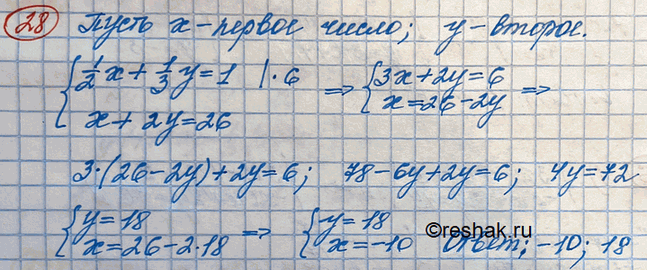 28 Пусть x - первое число; y - второе.
{ 1/2 x + 1/3 y = 1 | · 6 ⇒ { 3x + 2y = 6 ⇒
x + 2y = 26 x = 26 - 2y
3 · (26 - 2y) + 2y = 6; 78 - 6y + 2y = 6; 4y = 72
{ y = 18 ⇒ { y = 18
x = 26 - 2 · 18 x = -10 Ответ: -10; 18
©reshak.ru